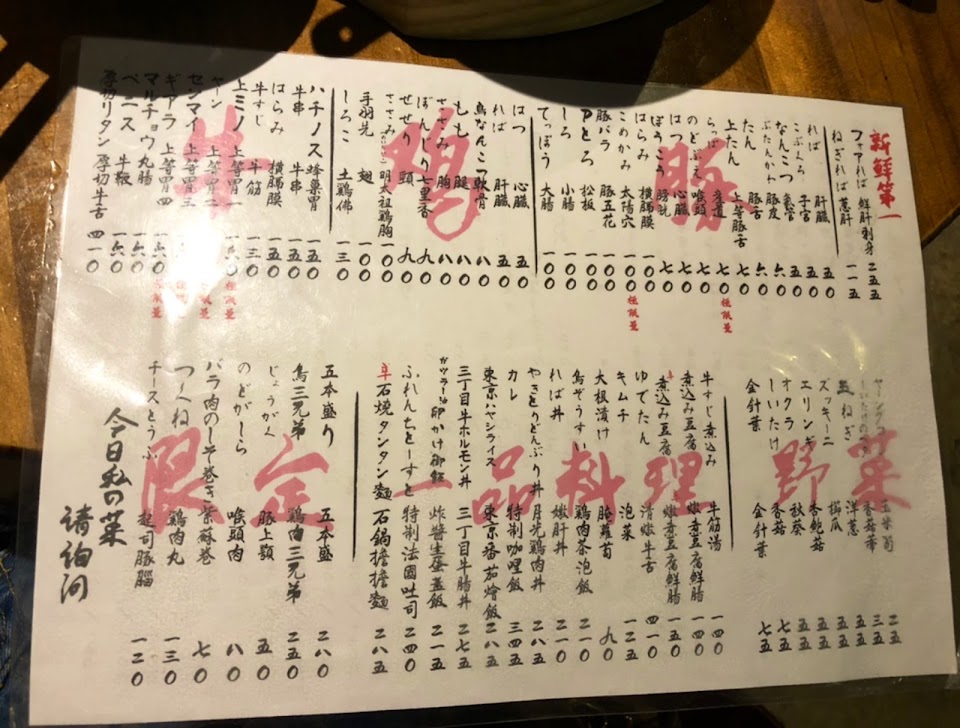 新鮮第一
フォアれば 鮮肝刺身 二五五
ねぎれば 蔥肝 一一五
豚
れば 肝臟 五0
こぶくろ 子宮 五0
なんこつ 氣管 五0
ぶたんかわ 豚皮 六0
たん 豚舌 六0
上たん 上等豚舌 七0
らっぱ 産道 七0 極限量
のどぶえ 喉頭 七0
はつ 心臟 七0
ぼうこう 膀胱 七0
はらみ 橫膈膜 一00
こめかみ 太陽穴 一00 極限量
豚バラ 豚五花 一00
Pとろ 松板 一00
しろ 小腸 一00
てっぽう 大腸 一00
鶏
はつ 心臟 五0
れば 肝臟 五0
鳥なんこつ 軟骨 八0
もも 腿 八0
ささみ 胸 八0
ぼんじり 七里香 九0
せせり 頸 九0
ささみ 明太祖鶏胸 一00
手羽先 翅 一00
しろこ 土鶏佛 一三0
牛
ハチノス 蜂巢胃 一五0
牛串 牛串 一五0
はらみ 橫膈膜 一五0
牛すじ 牛筋 一三0
上ミノ 上等胃一 一六0 極限量
ヤーン 上等胃二
センマイ 上等胃三 限量
ギアラ 上等胃四 一六0 極限量
マルチョウ 丸腸 一六0
ペニス 牛鞭 一六0
厚切りタン 厚切牛舌 四一0
野菜
ヤングコーン 玉米筍 二五
香菇蒂 三五
玉ねぎ 洋蔥 五五
ズッキーニ 櫛瓜 五五
エリンギ 杏鮑菇 五五
オクラ 秋葵 五五
しいたけ 香菇 七五
金針葉 金針葉 七五
一品料理
牛すじ煮込み 牛筋湯 一四0
煮込み豆腐 嫩煮豆腐鮮腸 一四0
煮込み豆腐 嫩煮豆腐鮮腸 一五0
ゆでたん 清嫩牛舌 四一0
キムチ 泡菜 一二五
大根漬け 醃蘿蔔 九0
鳥ぞうすい 鶏肉茶泡飯 二一0
れば丼 嫩肝丼 二一0
やきとりどんぶり丼 月光鶏肉丼 二八五
カレ 特制咖哩飯 三四五
東京ハヤシライス 東京番茄燴飯 二八五
三丁目牛ホルモン丼 三丁目牛腸丼 二七五
卵かけ御飯 炸醬生蛋蓋飯 二一五
ふれんちとーすと 特制法國吐司 二四0
辛石焼タンタン麺 石鍋擔擔麵 二八五
限定
五本盛り 五本盛 二八0
鳥三兄弟 鶏肉三兄弟 二五0
じょうがく 豚上顎 五0
のどがしら 喉頭肉 八0
バラ肉のしそ巻き 紫蘇卷 七0
つくね 鶏肉丸 一三0
チースとうふ 起司豚腦 一二0
今日私の菜
請詢問